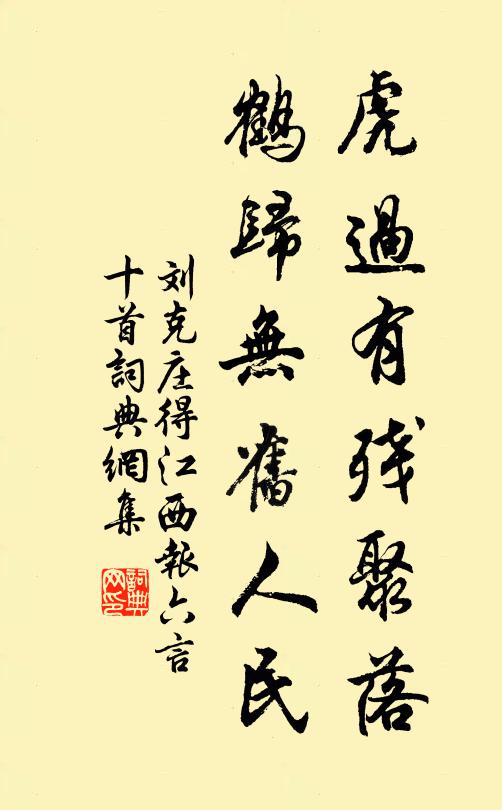 虎過有残聚落
鶴歸無舊人民
刘克庄得江西報六言
十首詞典網集
詞典
网印